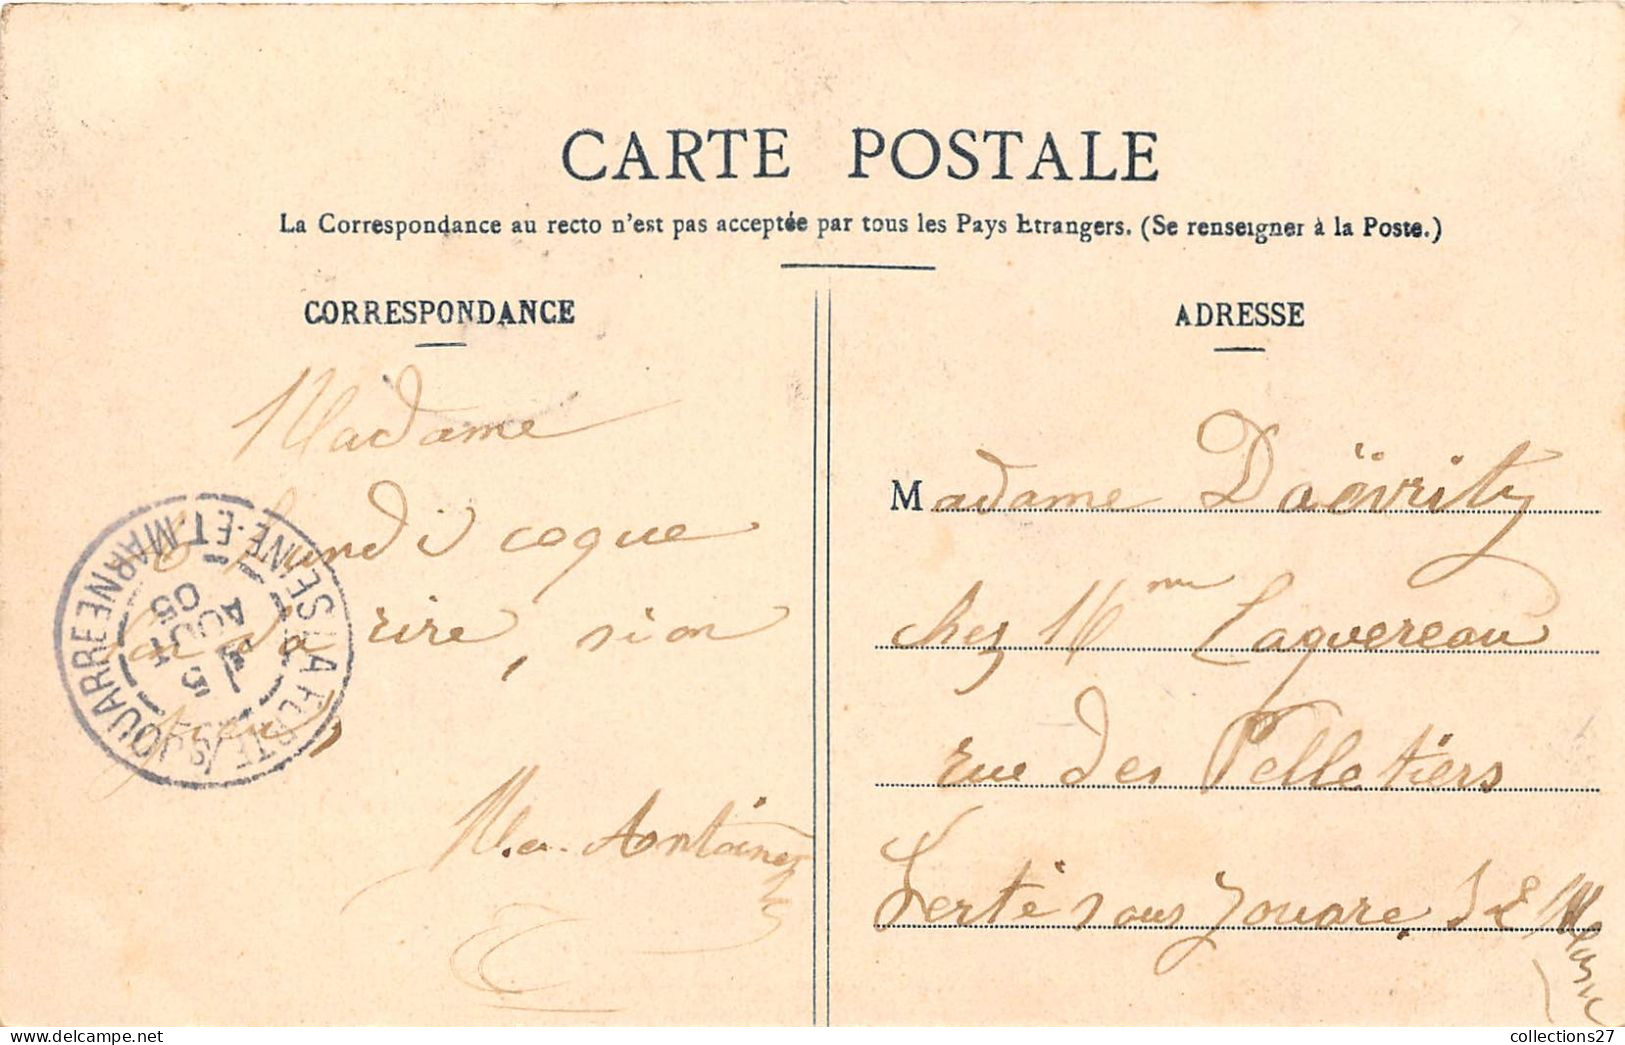 CARTE POSTALE
La Correspondance au recto n'est pas acceptée par tous les Pays Etrangers. (Se renseigner à la Poste.)
CORRESPONDANCE
Madame
Lundi coque
rire, sion
M. a. Antoine
LA FERTE/S/JOUARRE SEINE-ET-MARNE
5
4
AOUT
05
ADRESSE
Madame Daövrity
chez Mme Laquereau
rue des Pelletiers
Ferté sous Jouare, S E Marne
collections27